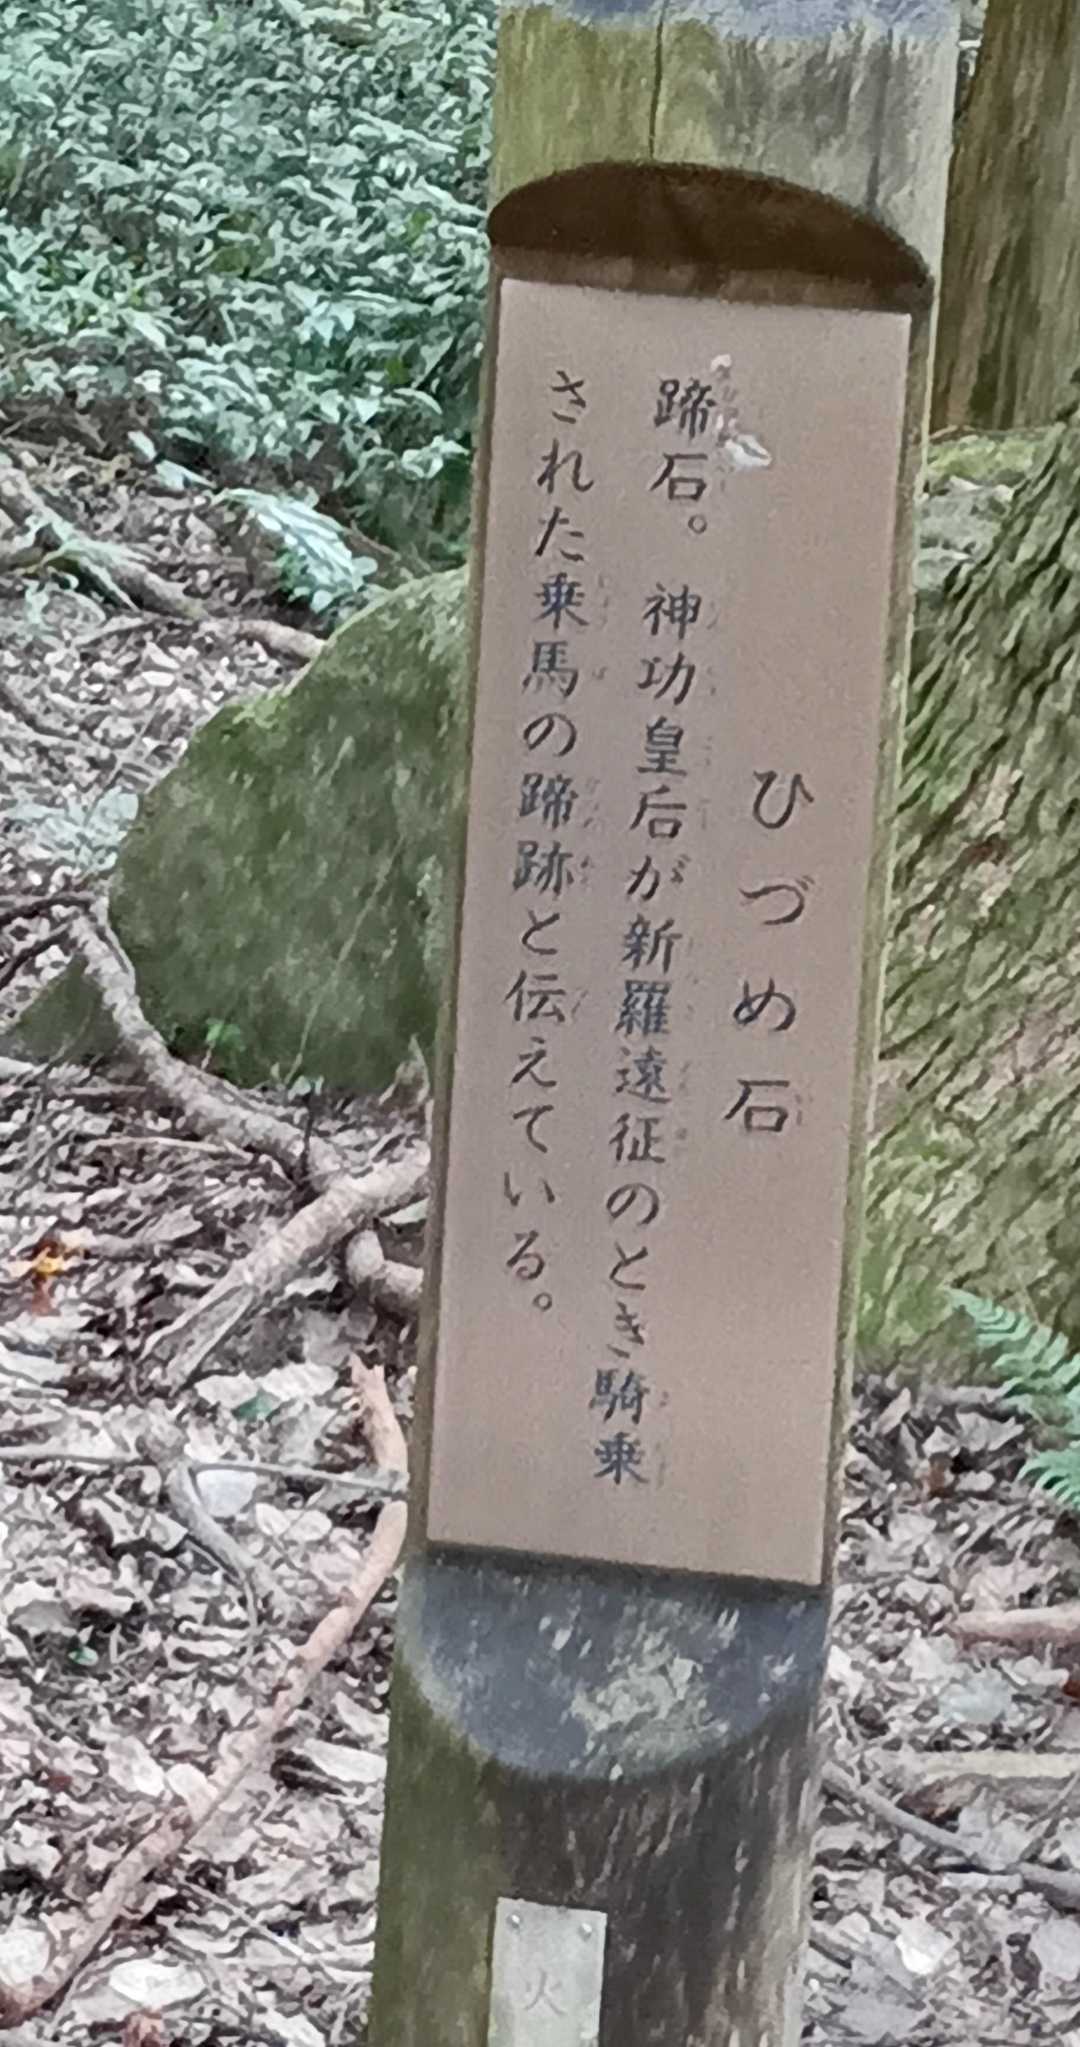 ひづめ石
蹄石。神功皇后が新羅遠征のとき騎乗
された乗馬の蹄跡と伝えている。
火